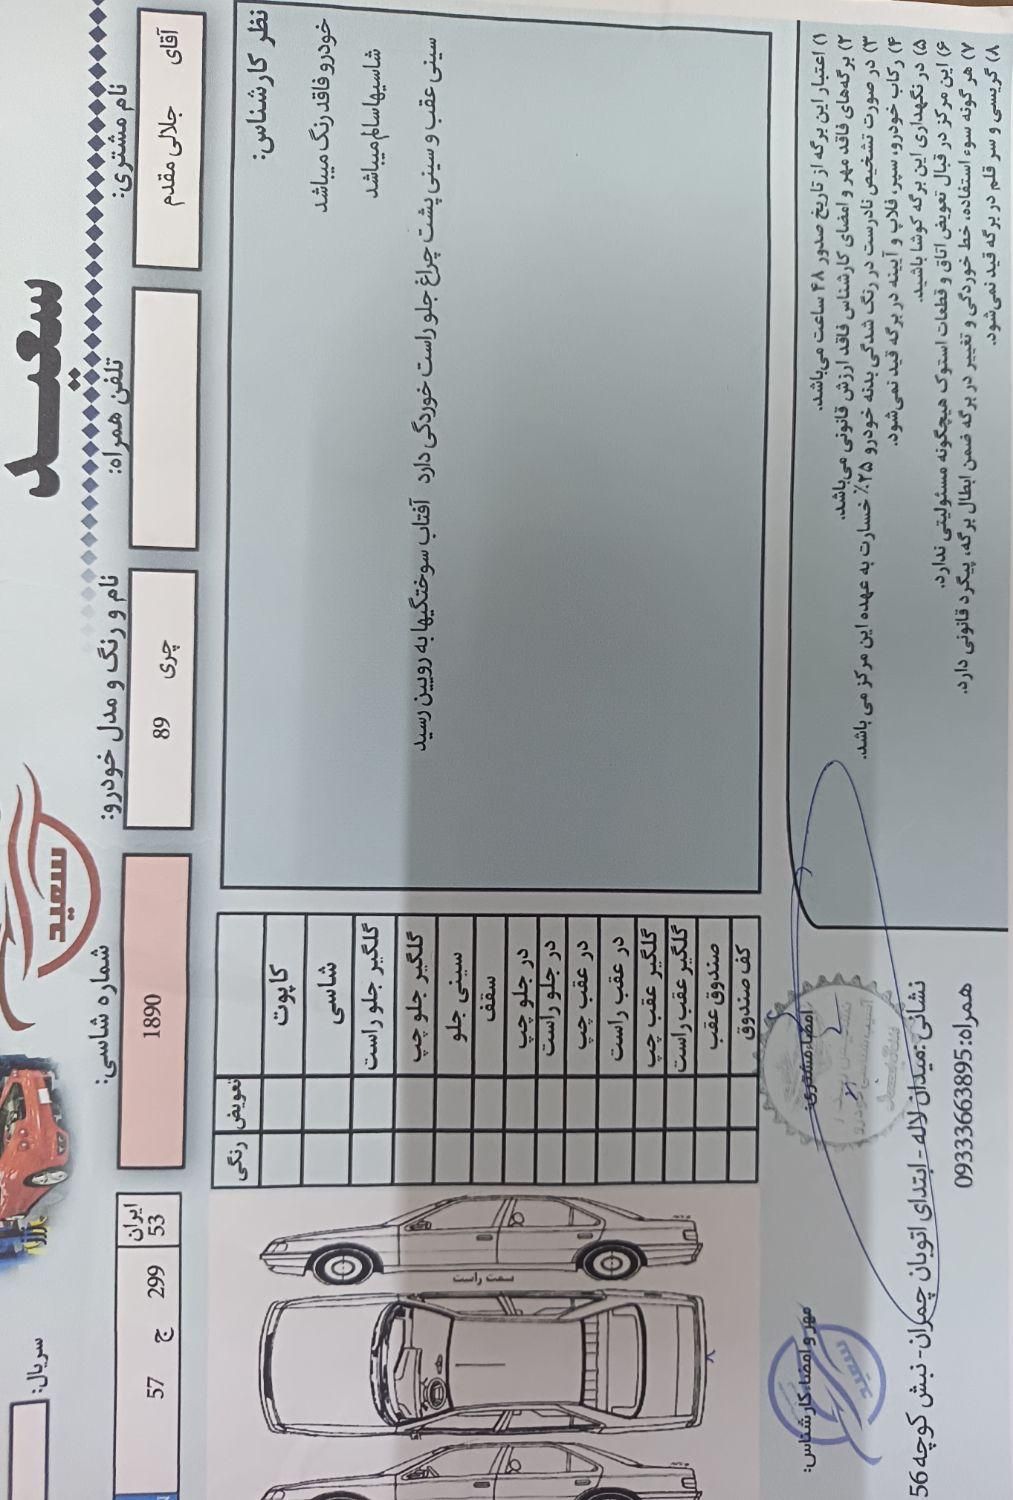 سعید
سعید
سریال:
نام مشتری:
تلفن همراه:
نام و رنگ و مدل خودرو:
شماره شاسی:
آقای جلالی مقدم
چری 89
1890
57 ج 299
ایران
53
نظر کارشناس:
خودرو فاقد رنگ میباشد
شاسیهاسالم میباشد
سینی عقب و سینی پشت چراغ جلو راست خوردگی دارد آفتاب سوختگیها به رویین رسید
تعویض
رنگی
کاپوت
شاسی
گلگیر جلو راست
گلگیر جلو چپ
سینی جلو
سقف
در جلو چپ
در جلو راست
در عقب چپ
در عقب راست
گلگیر عقب چپ
گلگیر عقب راست
صندوق عقب
کف صندوق
سمت راست
۱) اعتبار این برگه از تاریخ صدور ۴۸ ساعت می‌باشد.
۲) برگه‌های فاقد مهر و امضای کارشناس فاقد ارزش قانونی می‌باشد.
۳) در صورت تشخیص نادرست در رنگ شدگی بدنه خودرو ۲۵٪ خسارت به عهده این مرکز می باشد.
۴) رکاب خودرو، سپر، فلاپ و آیینه در برگه قید نمی‌شود.
۵) در نگهداری این برگه کوشا باشید.
۶) این مرکز در قبال تعویض اتاق و قطعات استوک هیچگونه مسئولیتی ندارد.
۷) هر گونه سوء استفاده، خط خوردگی و تغییر در برگه ضمن ابطال برگه، پیگرد قانونی دارد.
۸) گریسی و سر قلم در برگه قید نمی‌شود.
امضاء مشتری:
مهر و امضاء کارشناس:
سعید
نشانی: میدان لاله - ابتدای اتوبان چمران - نبش کوچه 56
همراه: 09333663895